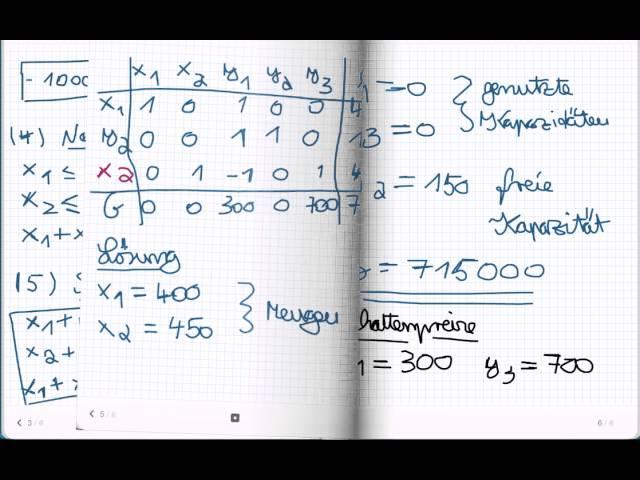 - 1000
(4) N
x₁ ≤
x₂ ≤
x₁ + x
(5)
x₁ +
x₂ +
x₁ +
3 / 6
x₁ x₂ y₁ y₂ y₃
x₁ 1 0 1 0 0 4
y₂ 0 0 1 1 0 13
x₂ 0 1 -1 0 1 4
G 0 0 300 0 700 7
Lösung
x₁ = 400
x₂ = 450
} Mengen
5 / 6
1 = 0
= 0
} genutzte
Kapazidäten
2 = 150 freie
Kapazität
= 715000
hattenpreise
1 = 300 y₃ = 700
6 / 6